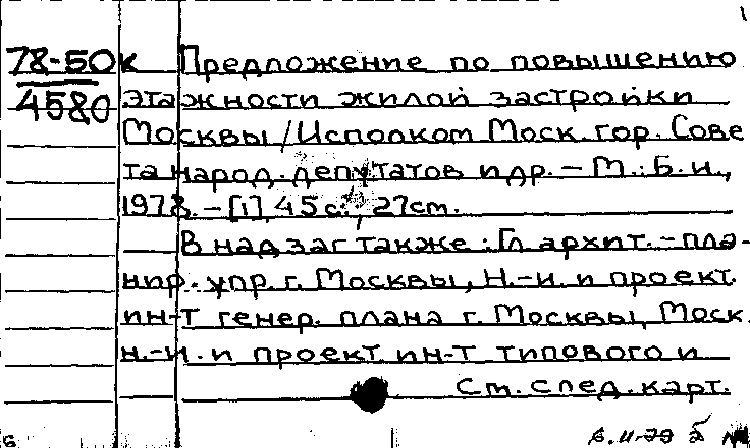 1
78-50к Предложение по повышению
4580 этажности жилой застройки
Москвы/Исполком Моск. гор. Сове
та народ. депутатов и др. – М.: Б. и.,
1978. – [1], 45 с., 27 см.
В надзаг также: Гл. архит. – пла-
нир. упр. г. Москвы, Н.-и. и проект.
ин-т генер. плана г. Москвы, Моск.
н.-и. и проект. ин-т типового и
См. след. карт.